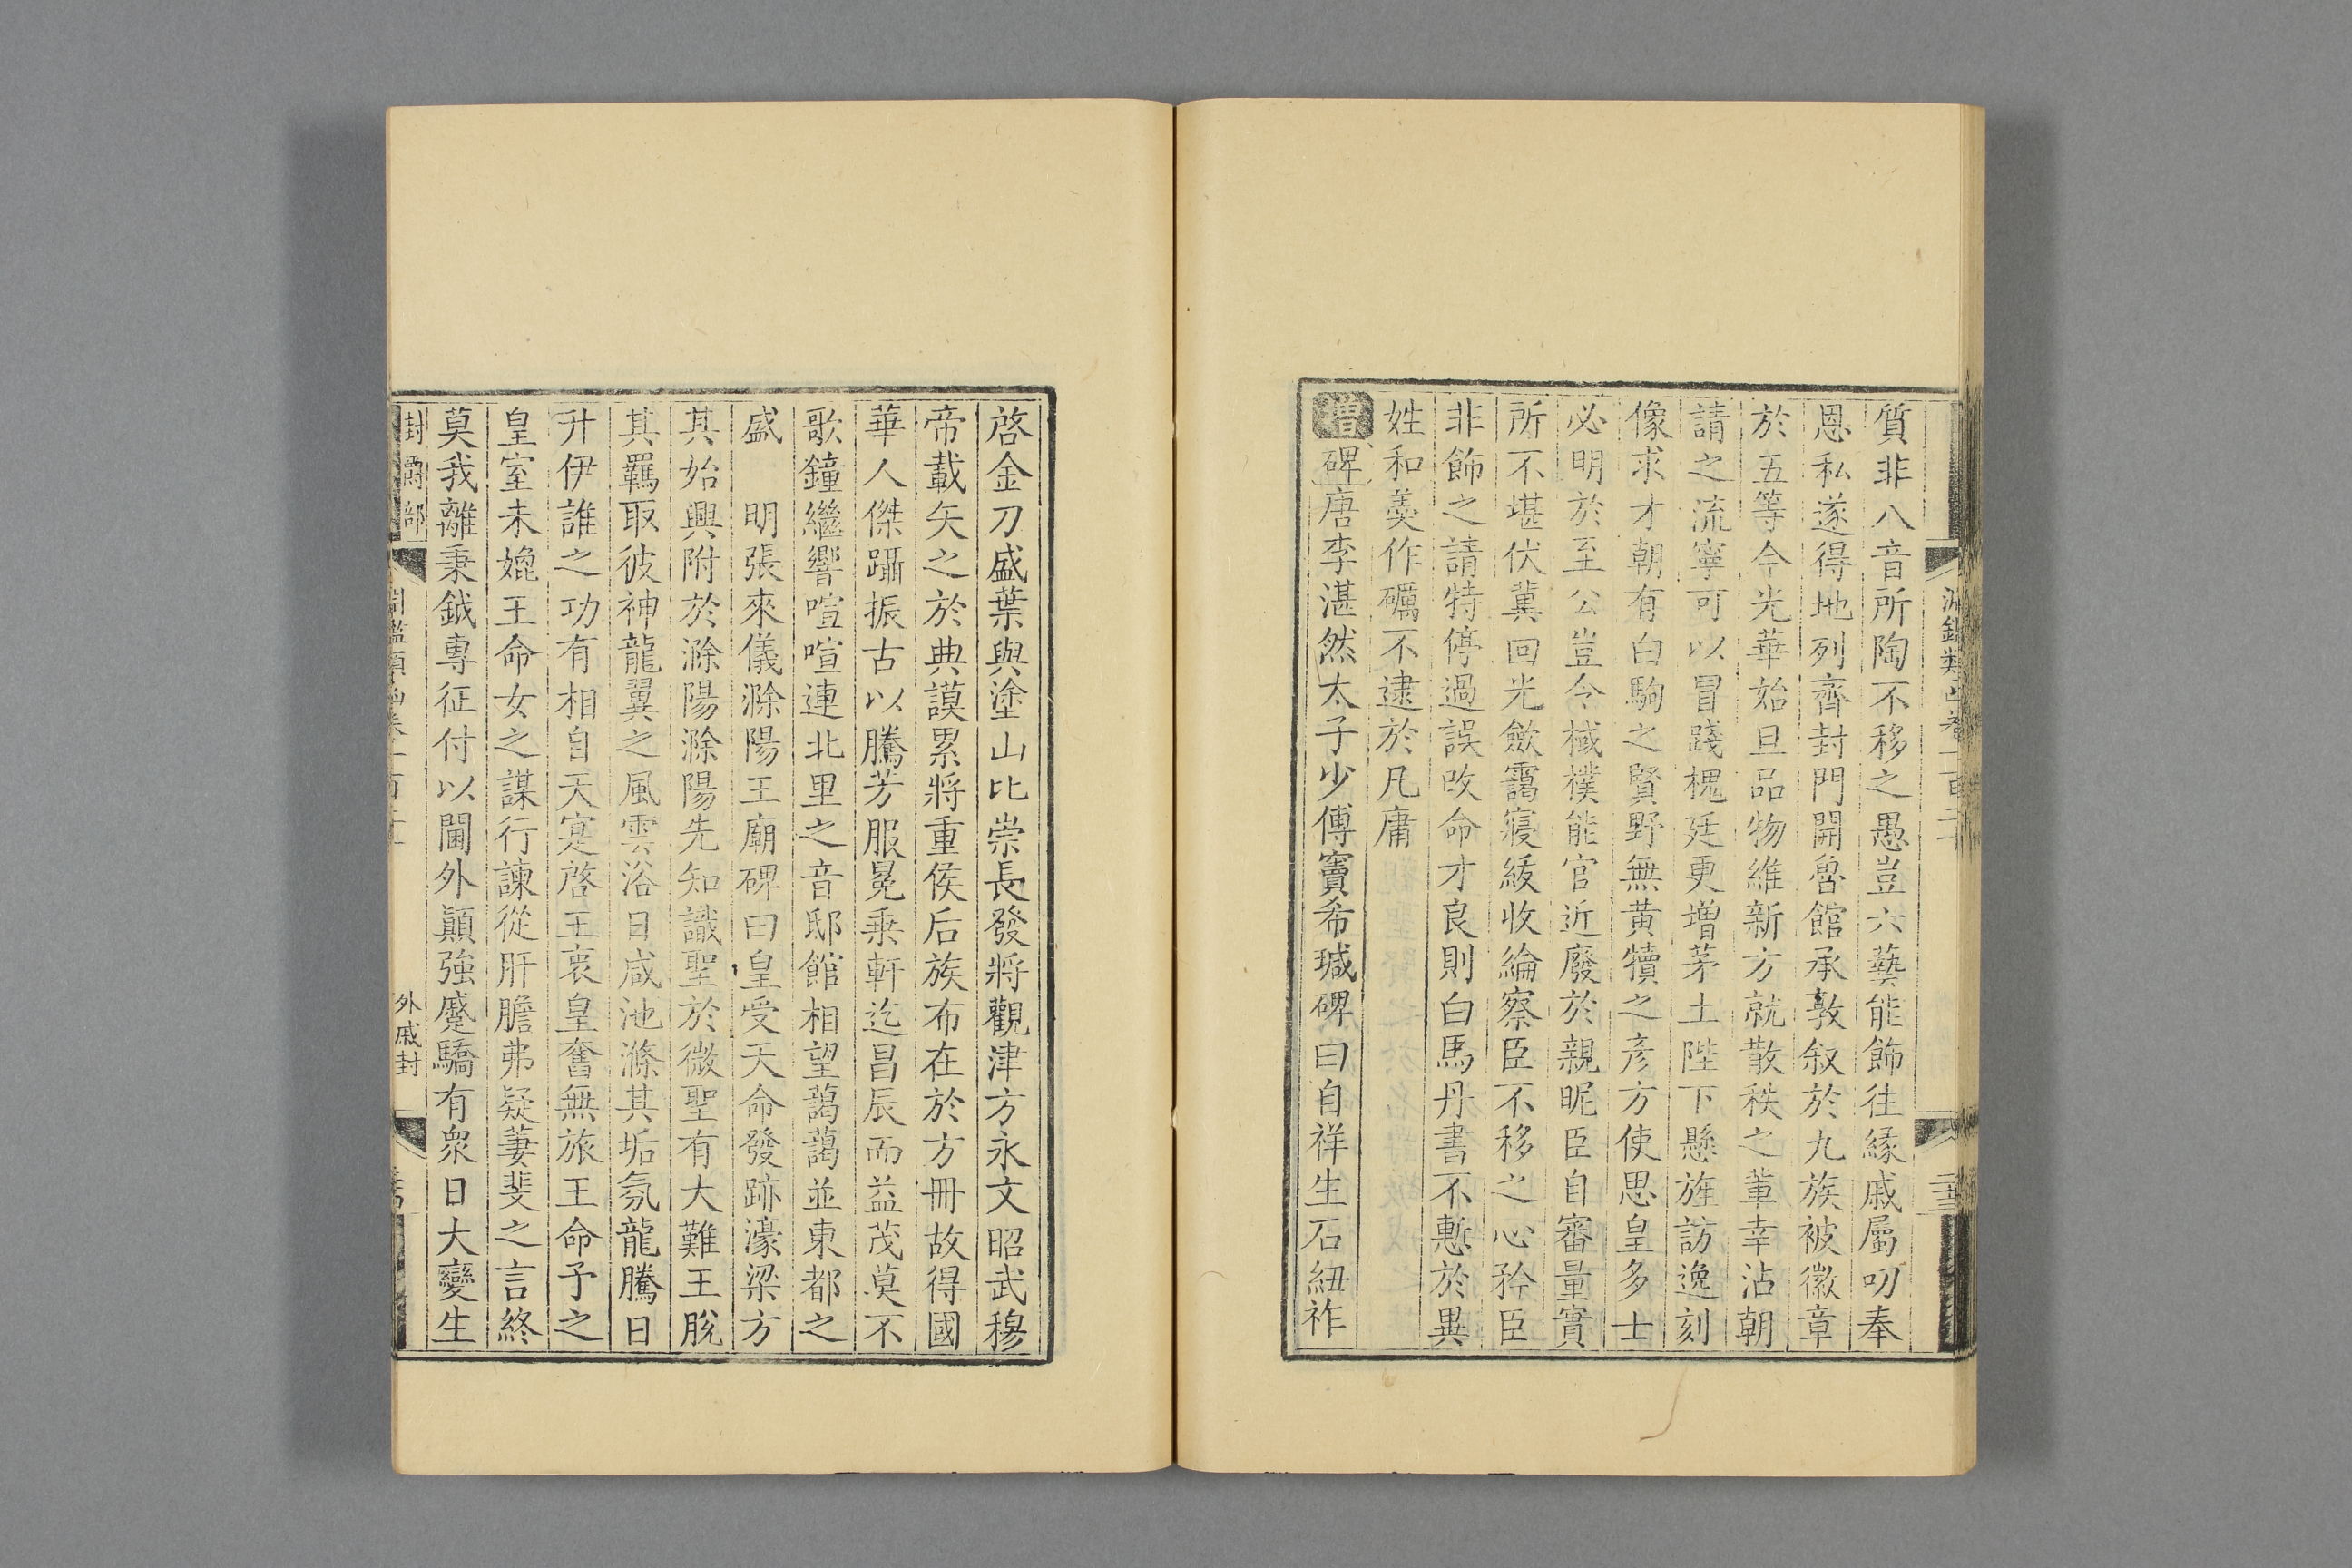 質非八音所陶不移之愚豈六藝能飾往緣戚屬叨奉
恩私遂得地列齊封門開魯館承敦叙於九族被徽章
於五等今光華始旦品物維新方就散秩之輩幸沾朝
請之流寧可以冒踐槐廷更增茅土陛下懸旌訪逸刻
像求才朝有白駒之賢野無黃犢之彥方使思皇多士
必明於至公豈令棫樸能官近廢於親昵臣自審量實
所不堪伏冀回光歛靄寢綍收綸察臣不移之心矜臣
非飾之請特停過誤改命才良則白馬丹書不慙於異
姓和羹作礪不逮於凡庸
增碑唐李湛然太子少傅竇希瑊碑曰自祥生石紐祚
啓金刀盛葉與塗山比崇長發將觀津方永文昭武穆
帝載矢之於典謨累將重侯后族布在於方冊故得國
華人傑躡振古以騰芳服冕乘軒迄昌辰而益茂莫不
歌鐘繼響喧喧連北里之音邸館相望藹藹並東都之
盛　明張來儀滁陽王廟碑曰皇受天命發跡濠梁方
其始興附於滁陽滁陽先知識聖於微聖有大難王脫
其羈取彼神龍翼之風雲浴日咸池滌其垢氛龍騰日
升伊誰之功有相自天寔啓王衷皇奮無旅王命予之
皇室未媲王命女之謀行諫從肝膽弗疑萋斐之言終
莫我離秉鉞專征付以閫外顛強蹙驕有衆日大變生
封爵部
外戚封